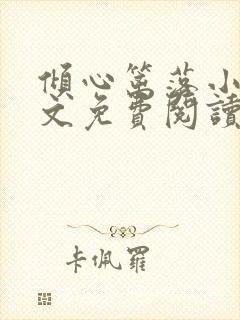 傾心篱落小
文免費閱讀
卡佩羅